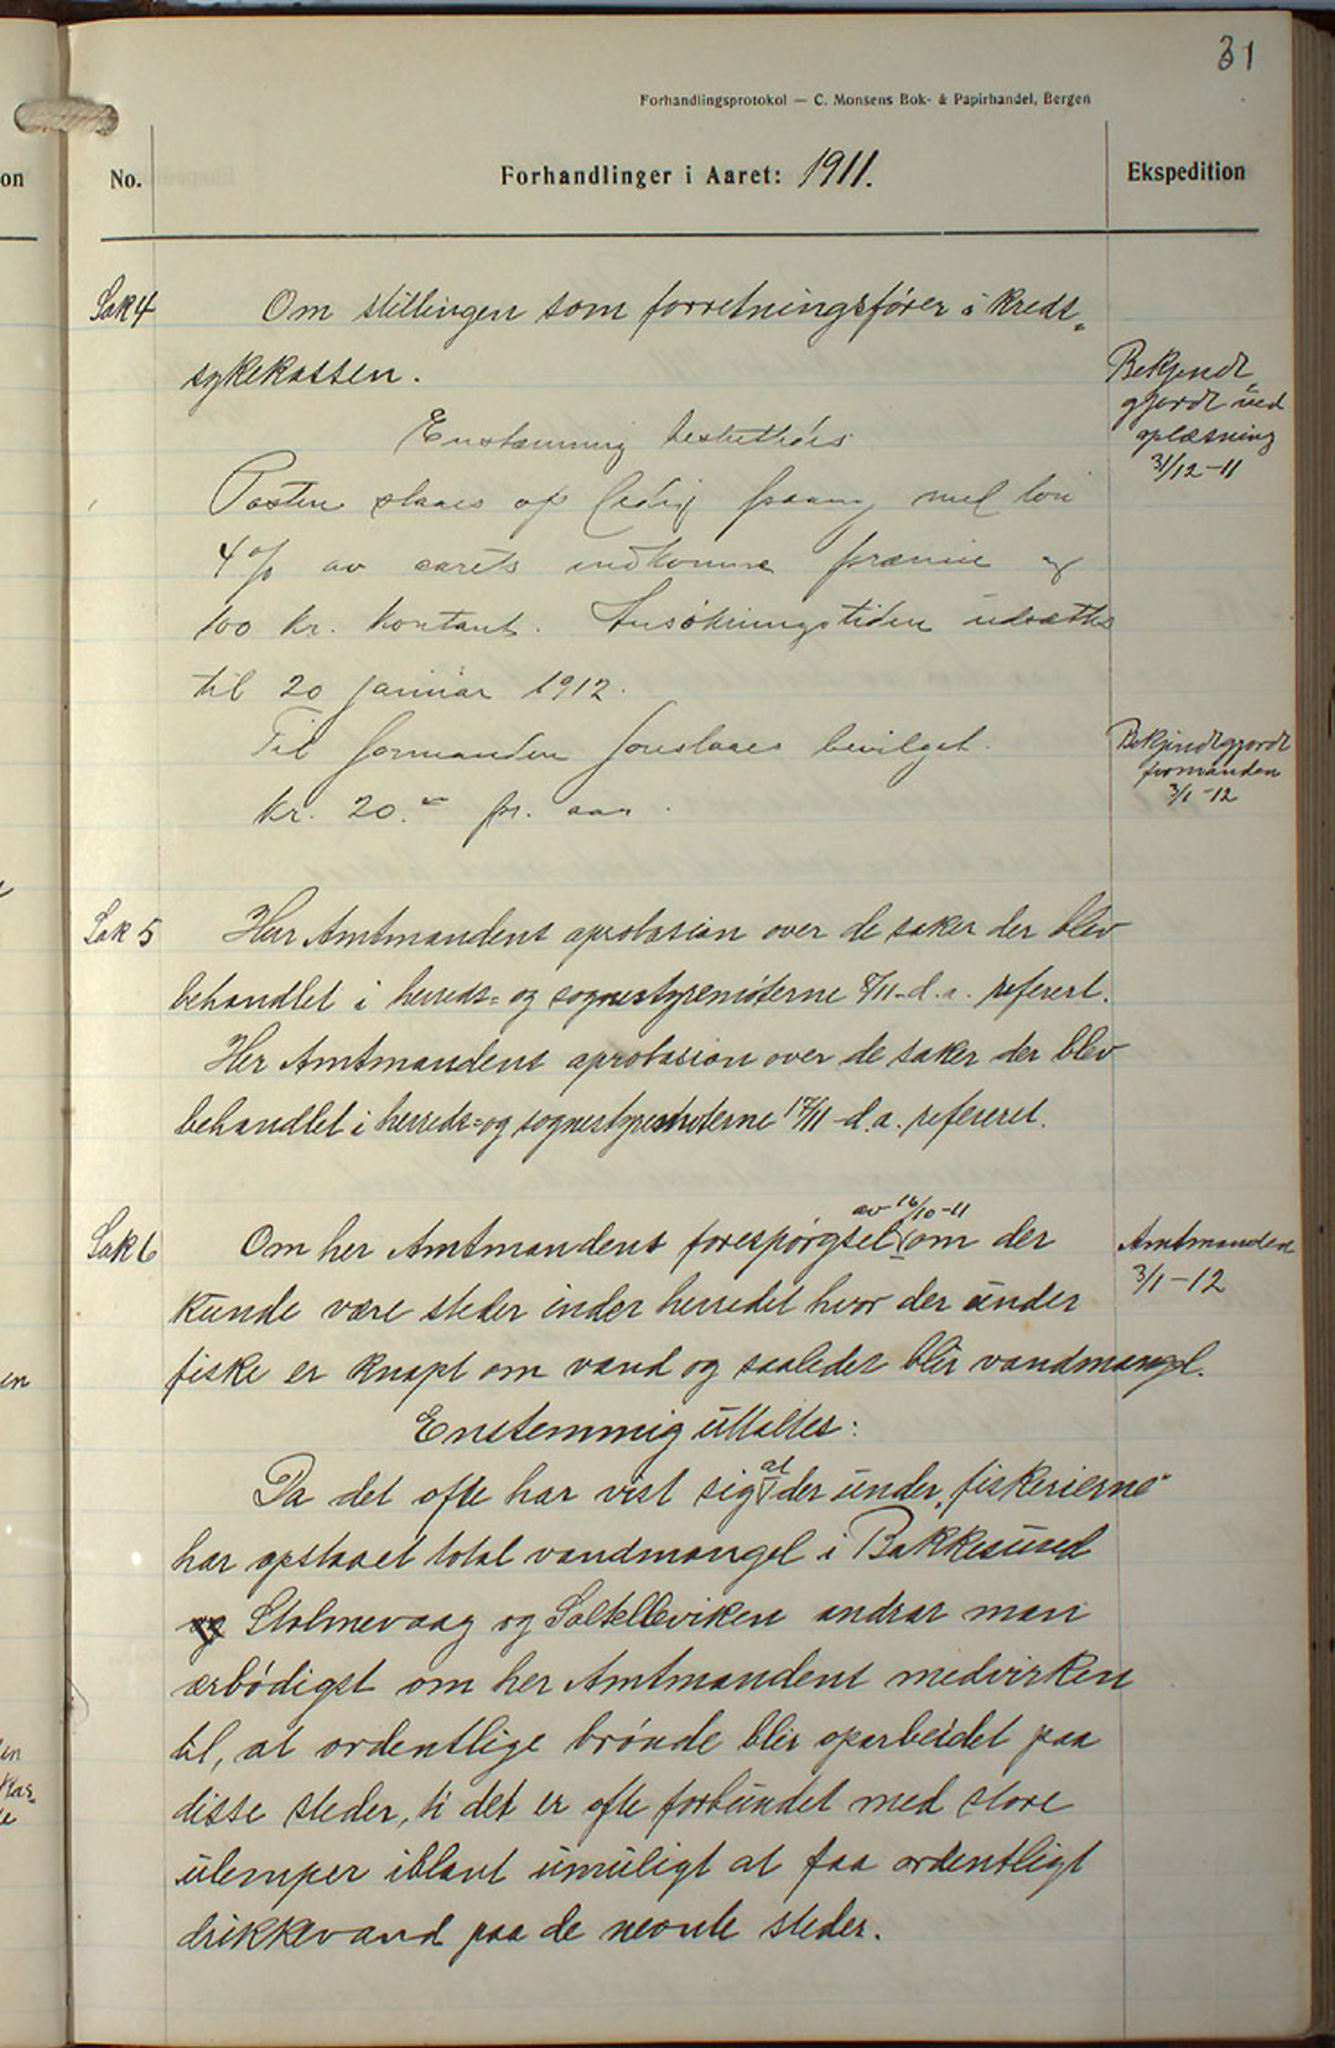 31
Forhandlingsprotokol — C. Monsens Bok- & Papirhandel, Bergen
on
No.
Forhandlinger i Aaret: 1911.
Ekspedition
Sak 4
Om stillingen som forretningsfører i kreds-
sykekassen.
Enstemmig besluttedes
Posten slaaes op ledig paany med løn
4 % av aarets indkomne præmie og
100 kr. kontant. Ansökningstiden utsættes
til 20 januar 1912.
Til formanden foreslaaes bevilget
kr. 20.- pr. aar.
Bekjendt
gjordt ved
oplæsning
31/12-11
Bekjendtgjordt
formanden
3/1-12
Sak 5
Herr Amtmandens aprobasion over de saker der blev
behandlet i herreds- og sognestyremøterne 8/11-d.a. referert.
Her Amtmandens aprobasion over de saker der blev
behandlet i herreds- og sognestyremøterne 17/11-d.a. refereret.
Sak 6
Om her Amtmandens forespørgsel av 16/10-11 om der
kunde være steder inden herredet hvor der under
fiske er knapt om vand og saaledes blir vandmangel.
Enstemmig uttaltes:
Da det ofte har vist sig at der under "fiskerierne"
har opstaaet total vandmangel i Bakkesund
og Stolmevaag og Saltelleviken andrar man
ærbødigst om her Amtmandens medvirken
til, at ordentlige brønde blir oparbeidet paa
disse steder, ti det er ofte forbundet med store
ulemper iblant umuligt at faa ordentligt
drikkevand paa de nevnte steder.
Amtmanden
3/1-12
en